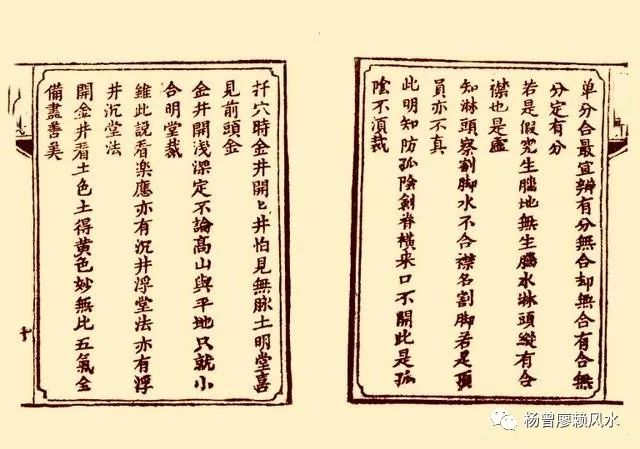 单分合最宜辨有分無合却無合有合無
分定有分
若是假究生腦地無生腦水淋頭縱有合
襟也是虛
知淋頭察割脚水不合襟名割脚若是頂
員亦不真
此明知防孤陰劍脊横来口不開此是孤
陰不須裁
扦穴時金井開匕井怕見無脉土明堂喜
見前頭金
金井開浅深定不論高山與平地只就小
合明堂裁
雖此説看楽應亦有沉井浮堂法亦有浮
井沉堂法
開金井看土色土得黄色妙無比五氣金
備盡善矣
十
杨曾廖赖风水